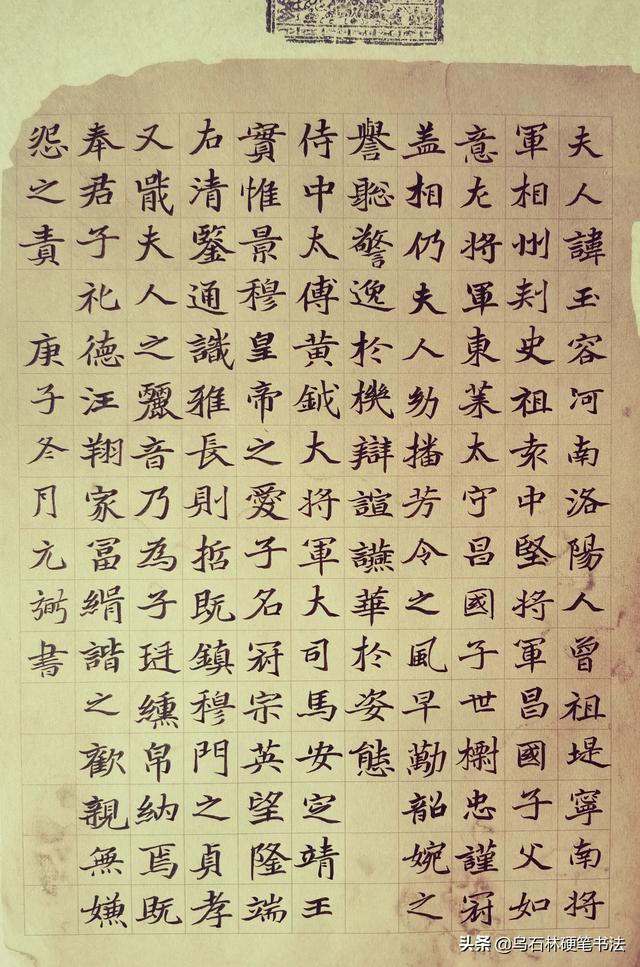 夫人諱玉容河南洛陽人曾祖堤寧南將
軍相州刾史祖袁中堅將軍昌國子父如
意左將軍東萊太守昌國子世樹忠謹冠
盖相仍夫人幼播芳令之風早勤韶婉之
譽聡警逸於機辯諠讌華於姿態
侍中太傅黄鉞大將軍大司馬安定靖王
實惟景穆皇帝之愛子名冠宗英望隆端
右清鑒通識雅長則哲既鎮穆門之貞孝
又夫人之麗音乃為子珽纁帛納焉既
奉君子礼德汪翔家冨絹諧之歡親無嫌
怨之責 庚子冬月元弻書
头条 @乌石林硬笔书法